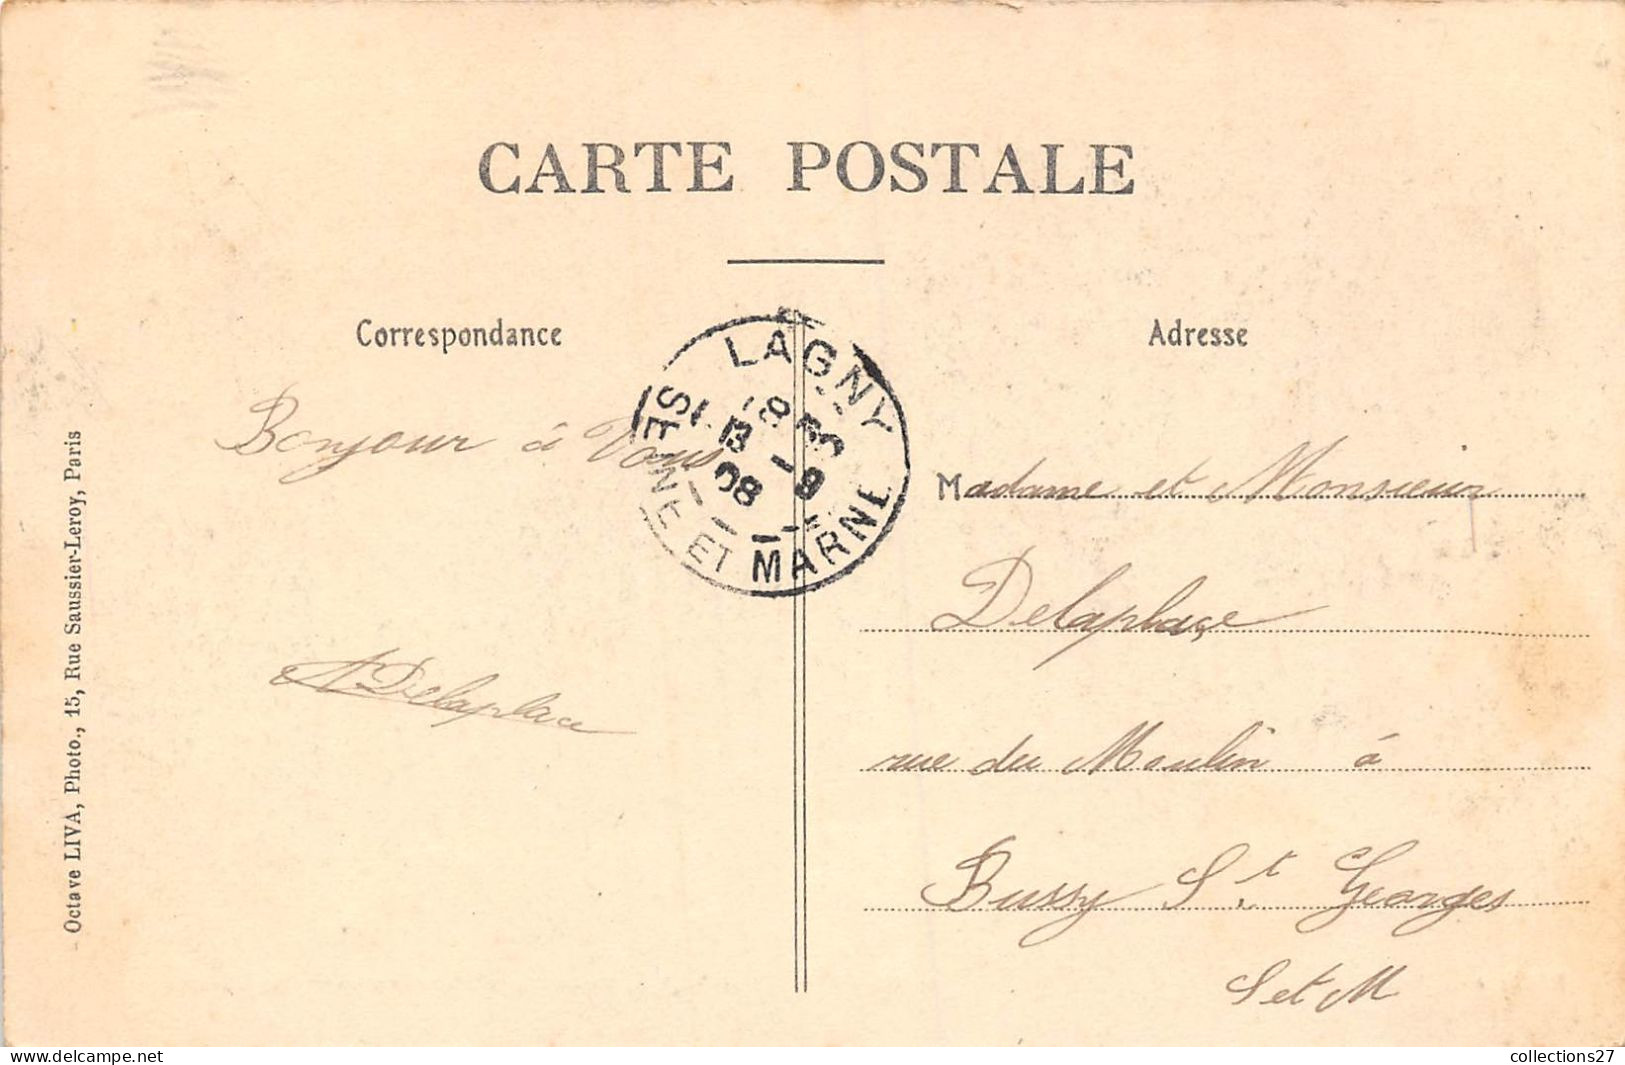 CARTE POSTALE
Correspondance
Bonjour à Vous
A Delaplace
Adresse
Madame et Monsieur
Delaplace
rue du Moulin à
Bussy St. Georges
S et M
LAGNY
SEINE ET MARNE
Octave LIVA, Photo., 15, Rue Saussier-Leroy, Paris
collections27